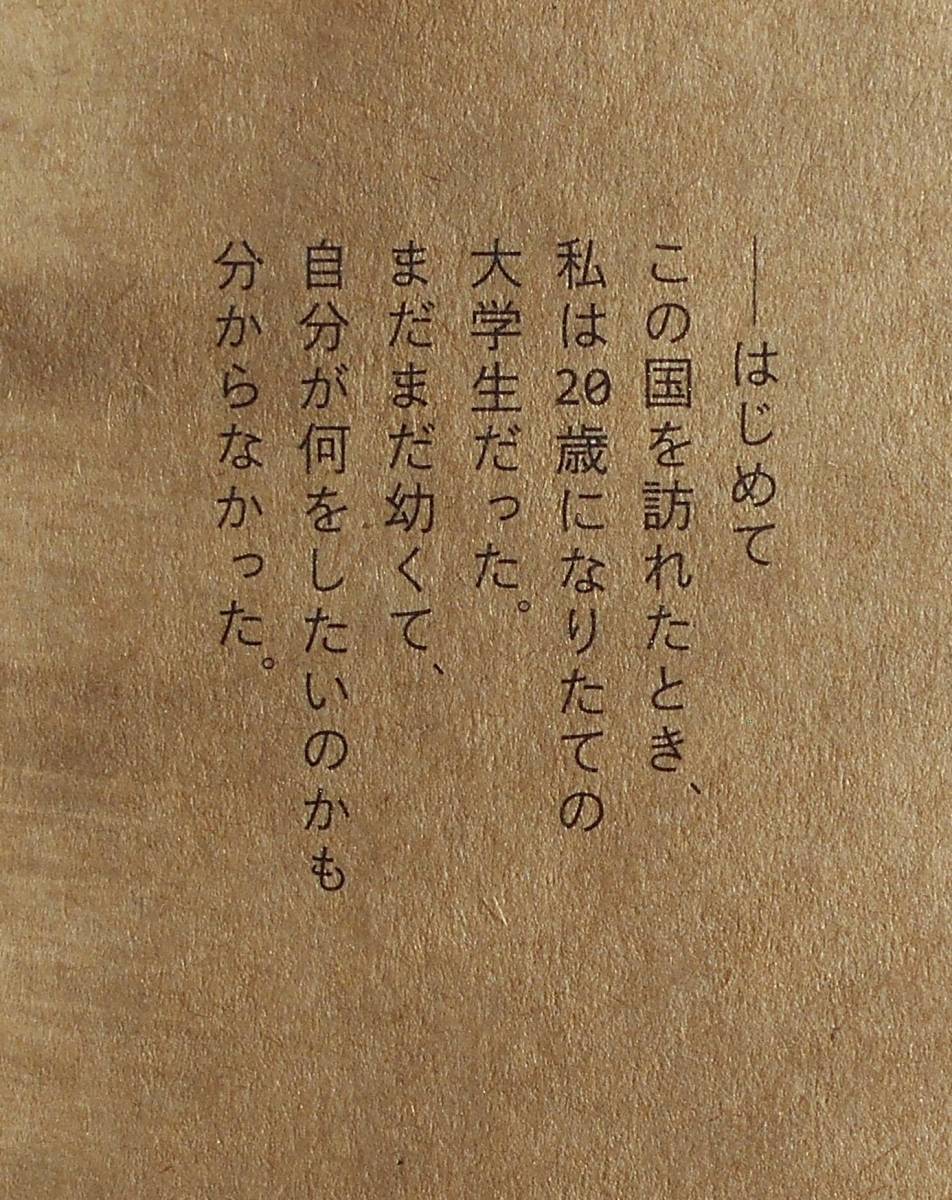 ──はじめて
この国を訪れたとき、
私は20歳になりたての
大学生だった。
まだまだ幼くて、
自分が何をしたいのかも
分からなかった。